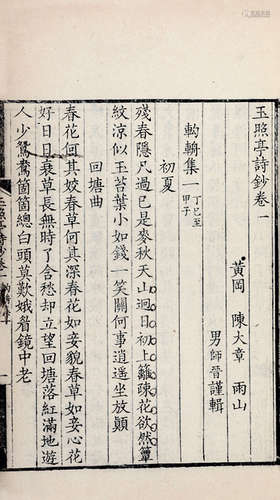 玉照亭詩鈔卷一
黃岡 陳大章 雨山
男師晉謹輯
軥輈集一丁巳至甲子
初夏
殘春隱尺過已是麥秋天山迴日初上籬疎花欲然簟
紋涼似玉苔葉小如錢一笑關何事逍遥坐放顛
回塘曲
春花何其姣春草何其深春花如妾貌春草如妾心花
好日日衰草長無時了含愁却立望回塘落紅滿地遊
人少鴛鴦箇箇總白頭莫歎娥眉鏡中老
玉照亭詩鈔卷一
一